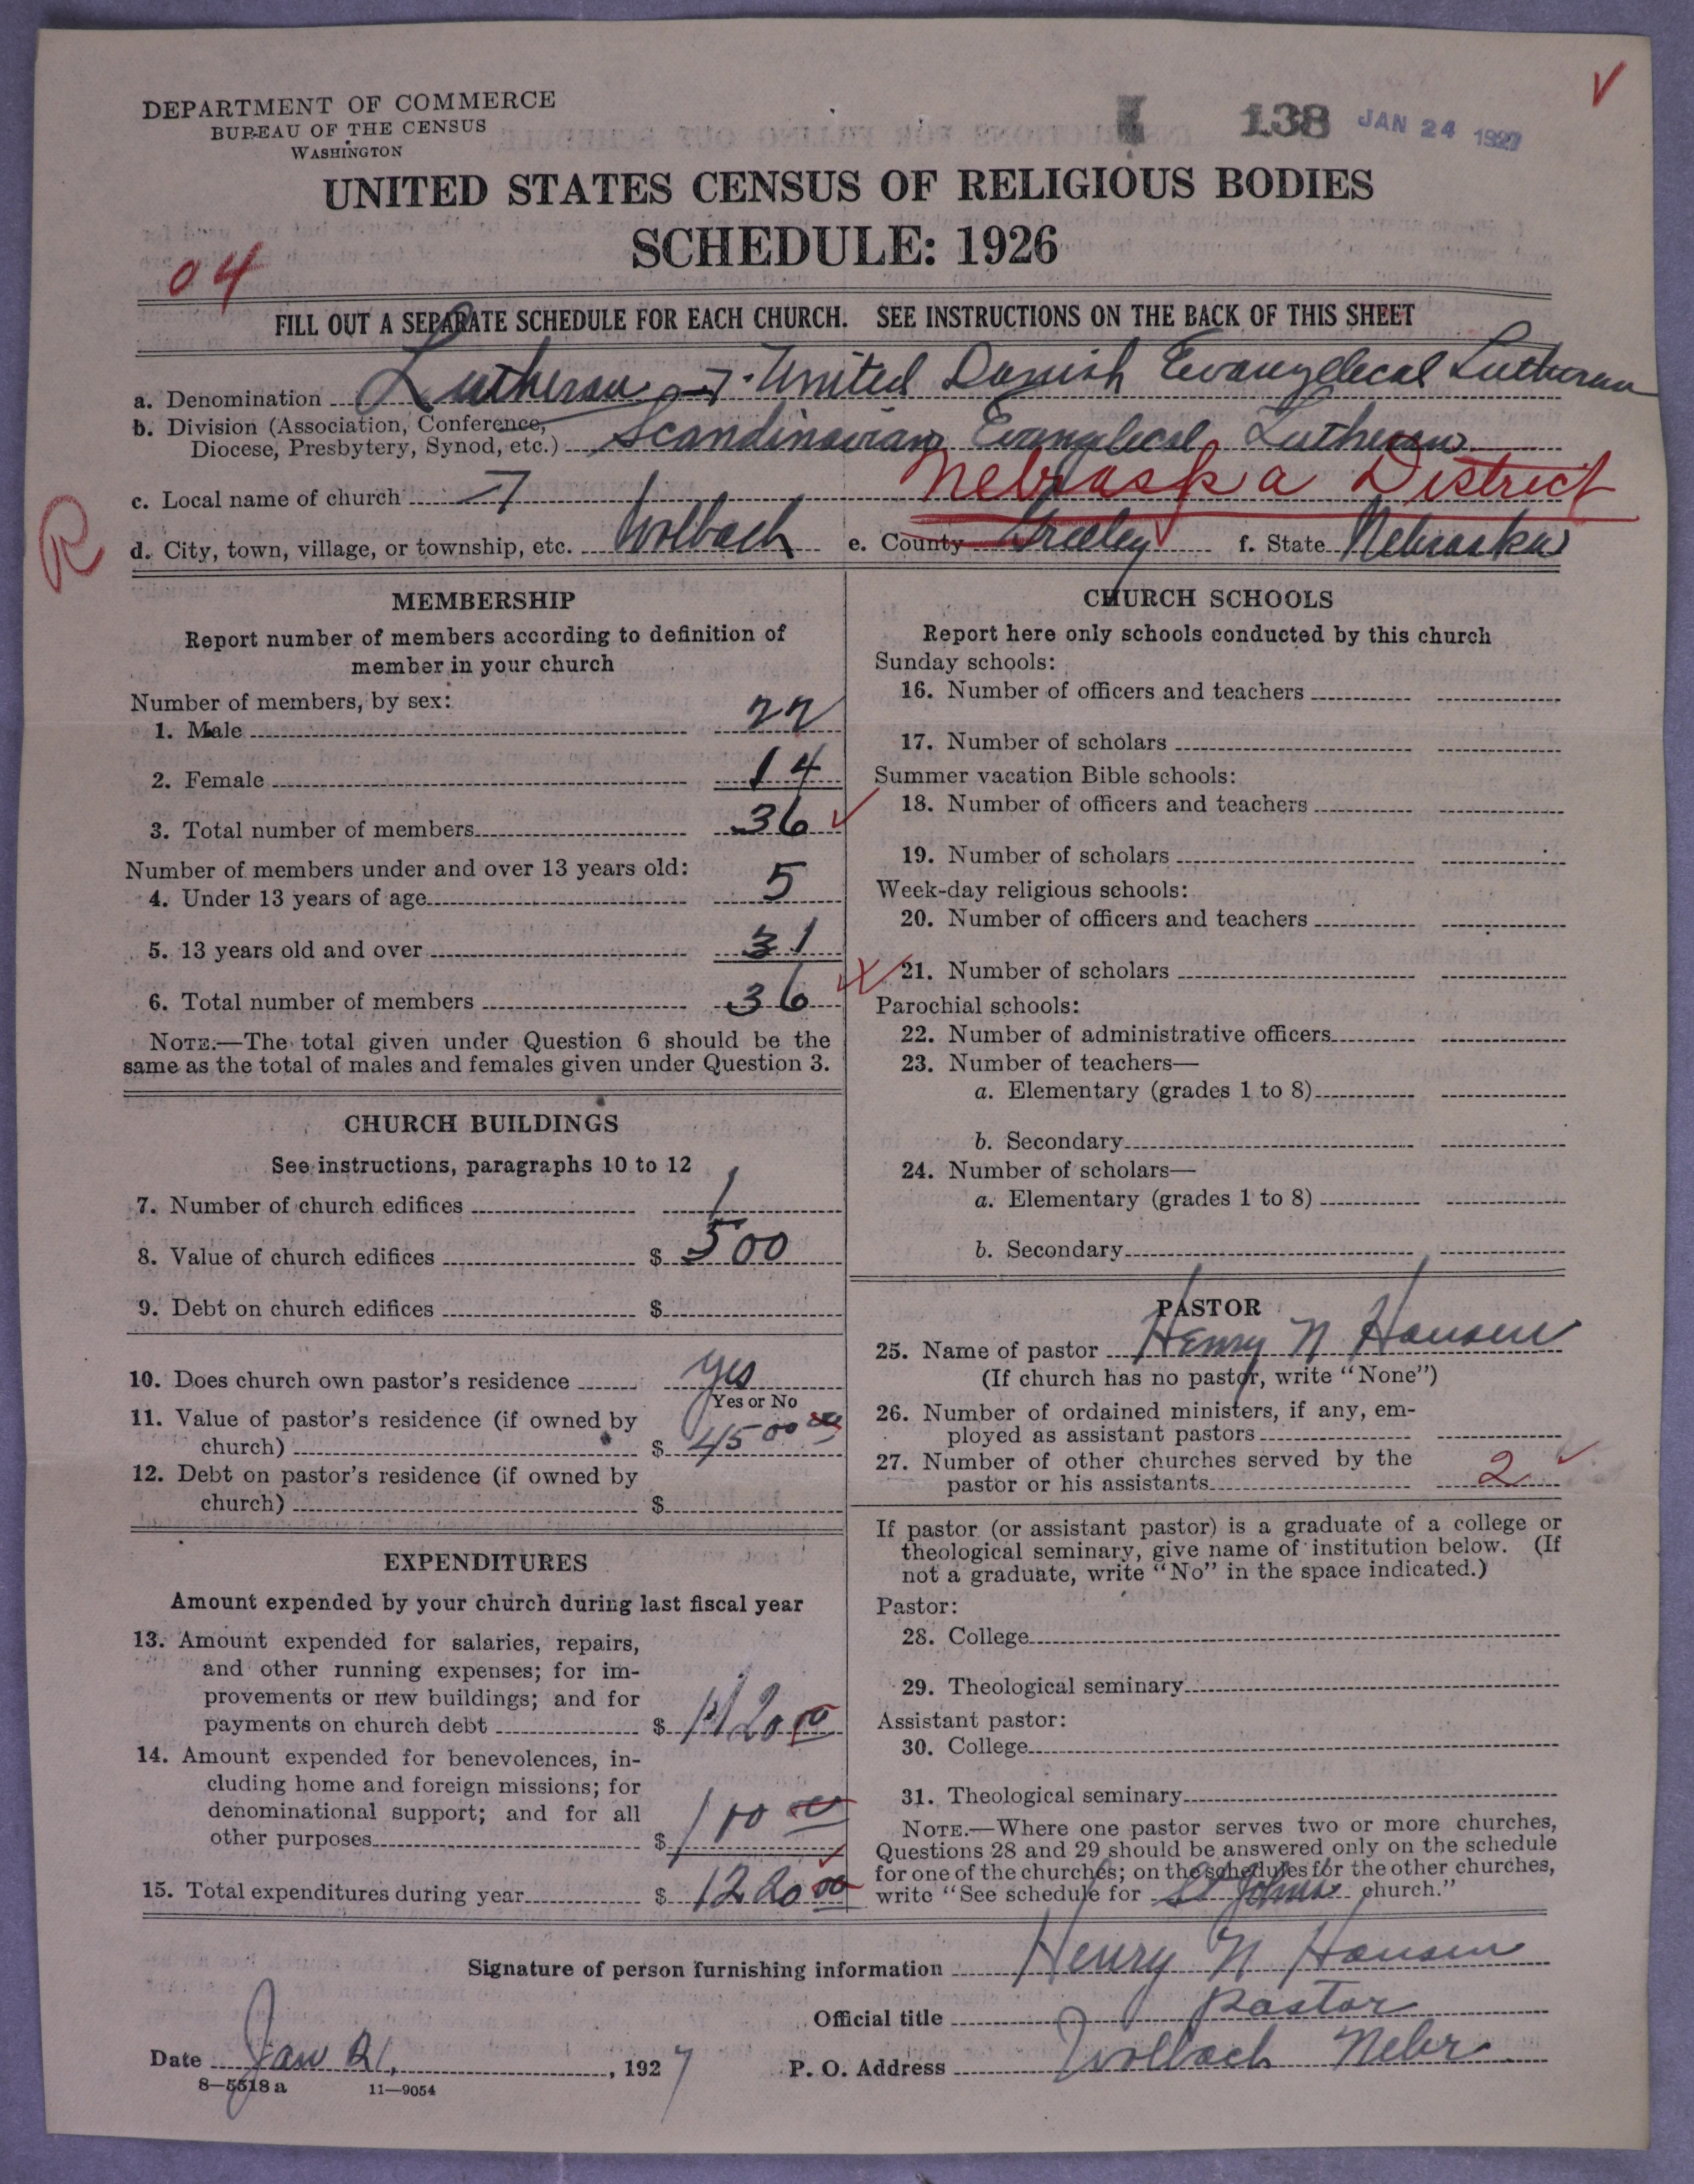 DEPARTMENT OF COMMERCE
BUREAU OF THE CENSUS
WASHINGTON
138 JAN 24 1927
UNITED STATES CENSUS OF RELIGIOUS BODIES
SCHEDULE: 1926
04
FILL OUT A SEPARATE SCHEDULE FOR EACH CHURCH. SEE INSTRUCTIONS ON THE BACK OF THIS SHEET
a. Denomination Lutheran United Danish Evangelical Lutheran
b. Division (Association, Conference,
Diocese, Presbytery, Synod, etc.) Scandinavian Evangelical Lutheran
c. Local name of church Nebraska District
R
d. City, town, village, or township, etc. Wolbach e. County Greeley f. State Nebraska
MEMBERSHIP
Report number of members according to definition of
member in your church
Number of members, by sex:
1. Male 22
2. Female 14
3. Total number of members 36
Number of members under and over 13 years old:
4. Under 13 years of age 5
5. 13 years old and over 31
6. Total number of members 36
NOTE.—The total given under Question 6 should be the
same as the total of males and females given under Question 3.
CHURCH BUILDINGS
See instructions, paragraphs 10 to 12
7. Number of church edifices 1
8. Value of church edifices $ 500
9. Debt on church edifices $
10. Does church own pastor's residence yes
Yes or No
11. Value of pastor's residence (if owned by
church) $ 4500 00
12. Debt on pastor's residence (if owned by
church) $
EXPENDITURES
Amount expended by your church during last fiscal year
13. Amount expended for salaries, repairs,
and other running expenses; for im-
provements or new buildings; and for
payments on church debt $ 1120 00
14. Amount expended for benevolences, in-
cluding home and foreign missions; for
denominational support; and for all
other purposes $ 100 00
15. Total expenditures during year $ 1220 00
CHURCH SCHOOLS
Report here only schools conducted by this church
Sunday schools:
16. Number of officers and teachers
17. Number of scholars
Summer vacation Bible schools:
18. Number of officers and teachers
19. Number of scholars
Week-day religious schools:
20. Number of officers and teachers
21. Number of scholars
Parochial schools:
22. Number of administrative officers
23. Number of teachers—
a. Elementary (grades 1 to 8)
b. Secondary
24. Number of scholars—
a. Elementary (grades 1 to 8)
b. Secondary
PASTOR
25. Name of pastor Henry N Hansen
(If church has no pastor, write "None")
26. Number of ordained ministers, if any, em-
ployed as assistant pastors
27. Number of other churches served by the
pastor or his assistants 2
If pastor (or assistant pastor) is a graduate of a college or
theological seminary, give name of institution below. (If
not a graduate, write "No" in the space indicated.)
Pastor:
28. College
29. Theological seminary
Assistant pastor:
30. College
31. Theological seminary
NOTE.—Where one pastor serves two or more churches,
Questions 28 and 29 should be answered only on the schedule
for one of the churches; on the schedules for the other churches,
write "See schedule for St Johns church."
Signature of person furnishing information Henry N Hansen
Official title Pastor
Date Jan 21, 1927 P. O. Address Wolbach Nebr
8—5518 a 11—9054